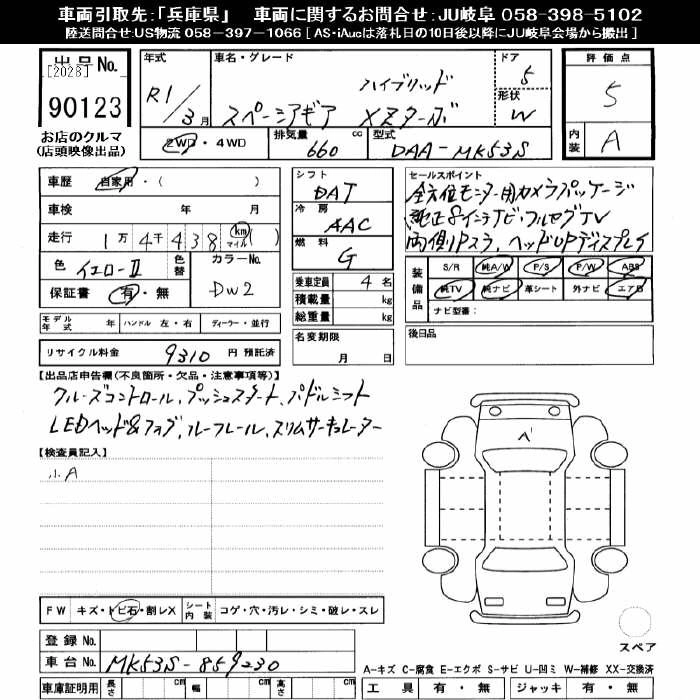 車両引取先:｢兵庫県｣　車両に関するお問合せ:JU岐阜 058-398-5102
陸送問合せ:US物流 058-397-1066 [ AS･iAucは落札日の10日後以降にJU岐阜会場から搬出 ]
出品No.
[2028]
90123
お店のクルマ
(店頭映像出品)
年式
R1/3月
車名・グレード
ハイブリッド
スペーシアギア XZターボ
ドア
5
形状
W
2WD・4WD
排気量
660 cc
型式
DAA-MK53S
評価点
5
内装
A
車歴 自家用・( )
車検 年 月
走行 1万 4千 438 km マイル ( )
色 イエローⅡ 色替
カラーNo.
DW2
保証書 有・無
シフト
DAT
冷房
AAC
燃料
G
乗車定員 4 名
積載量 kg
総重量 kg
セールスポイント
全方位モニター用カメラパッケージ
純正8インチナビ・フルセグTV
両側Pスラ、ヘッドUPディスプレイ
装備品
S/R 純A/W P/S P/W ABS
純TV 純ナビ 革シート 外ナビ エアB
ナビ型番:
モデル年式 年 ハンドル 左・右 ディーラー・並行
名変期限
月 日
後日品
リサイクル料金 9310 円 預託済
【出品店申告欄(不良箇所・欠品・注意事項等)】
クルーズコントロール、プッシュスタート、パドルシフト
LEDヘッド&フォグ、ルーフレール、スリムサーキュレーター
【検査員記入】
小A
FW キズ・トビ石・割レX シート内装 コゲ・穴・汚レ・シミ・破レ・スレ
登録No.
車台No. MK53S-859230
車庫証明用 長さ cm 幅 cm 高さ cm
スペア
A-キズ C-腐食 E-エクボ S-サビ U-凹ミ W-補修 XX-交換済
工具 有・無 ジャッキ 有・無